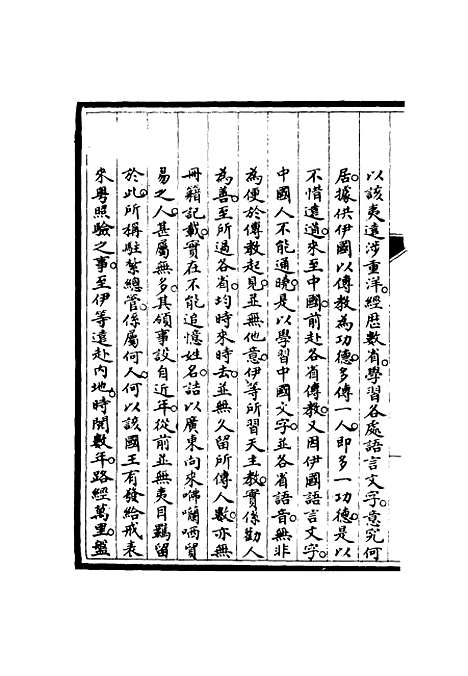 以該夷遠涉重洋。經歷數省。學習各處語言文字。意究何
居。據供伊國以傳教為功德。多傳一人。即多一功德。是以
不惜遠道。來至中國。前赴各省傳教。又因伊國語言文字。
中國人不能通曉。是以學習中國文字。並各省語音。無非
為便於傳教起見。並無他意。伊等所習天主教。實係勸人
為善。至所過各省。均時來時去。並無久留。所傳人數。亦無
冊籍記載。實在不能追憶姓名。詰以廣東向來咈囒哂貿
易之人。甚屬無多。其領事設自近年。從前並無夷目羈留
於此。所稱駐紮總管。係屬何人。何以該國王有發給戒表
來粵照驗之事。至伊等遠赴內地。時閱數年。路經萬里。盤